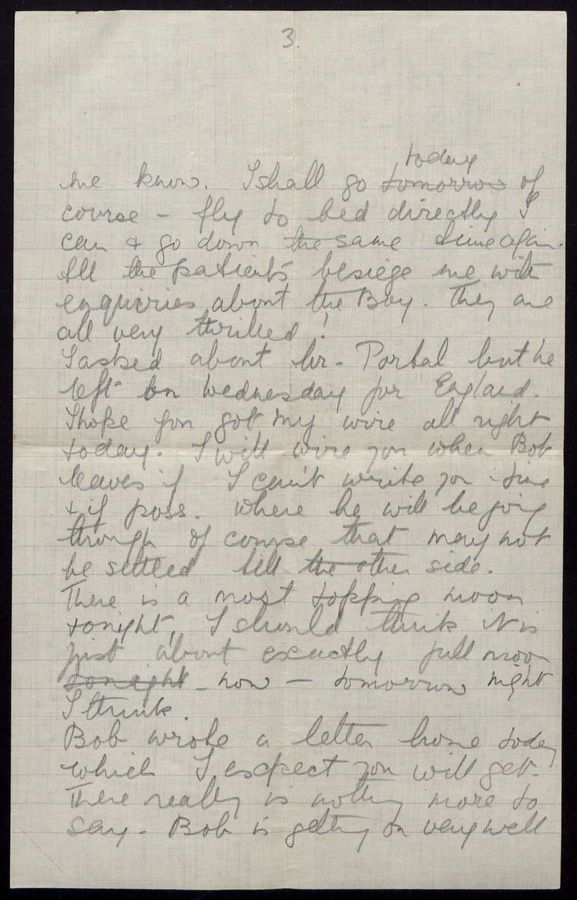 3.
today
me know. I shall go tomorrow of
course - fly to bed directly I
can & go down the same time again.
All the patients besiege me with
enquiries about the Boy. They are
all very thrilled!
I asked about Mr. Portal but he
left on Wednesday for England.
I hope you got my wire all right
today. I will wire you when Bob
leaves if I can't write you time
& if poss. where he will be going
through of course that may not
be settled till the other side.
There is a most topping moon
tonight, I should think it is
just about exactly full moon
tonight now - tomorrow night
I think.
Bob wrote a letter home today
which I expect you will get.
There really is nothing more to
say. Bob is getting on very well